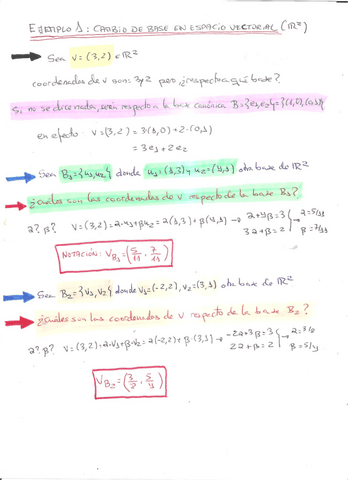 EJEMPLO 1: CAMBIO DE BASE EN ESPACIO VECTORIAL (ℝ²)
Sea v=(3,2) ∈ ℝ²
coordenadas de v son: 3 y 2 pero, ¿respecto a qué base?
Si no se dice nada, será respecto a la base canónica B={e₁,e₂}={(1,0),(0,1)}
en efecto: v=(3,2) = 3(1,0)+2·(0,1)
= 3e₁+2e₂
Sea B₁={u₁,u₂} donde u₁=(1,3) y u₂=(4,1) otra base de ℝ²
¿Cuáles son las coordenadas de v respecto de la base B₁?
α?, β? v=(3,2)=α·u₁+βu₂=α(1,3)+β(4,1) → α+4β=3 } α=5/11
3α+β=2 } β=7/11
NOTACIÓN: V_B₁=(5/11, 7/11)
Sea B₂={v₁,v₂} donde v₁=(-2,2), v₂=(3,1) otra base de ℝ²
¿Cuáles son las coordenadas de v respecto de la base B₂?
α?, β? v=(3,2)=α·v₁+β·v₂=α(-2,2)+β·(3,1) → -2α+3β=3
2α+β=2
V_B₂=